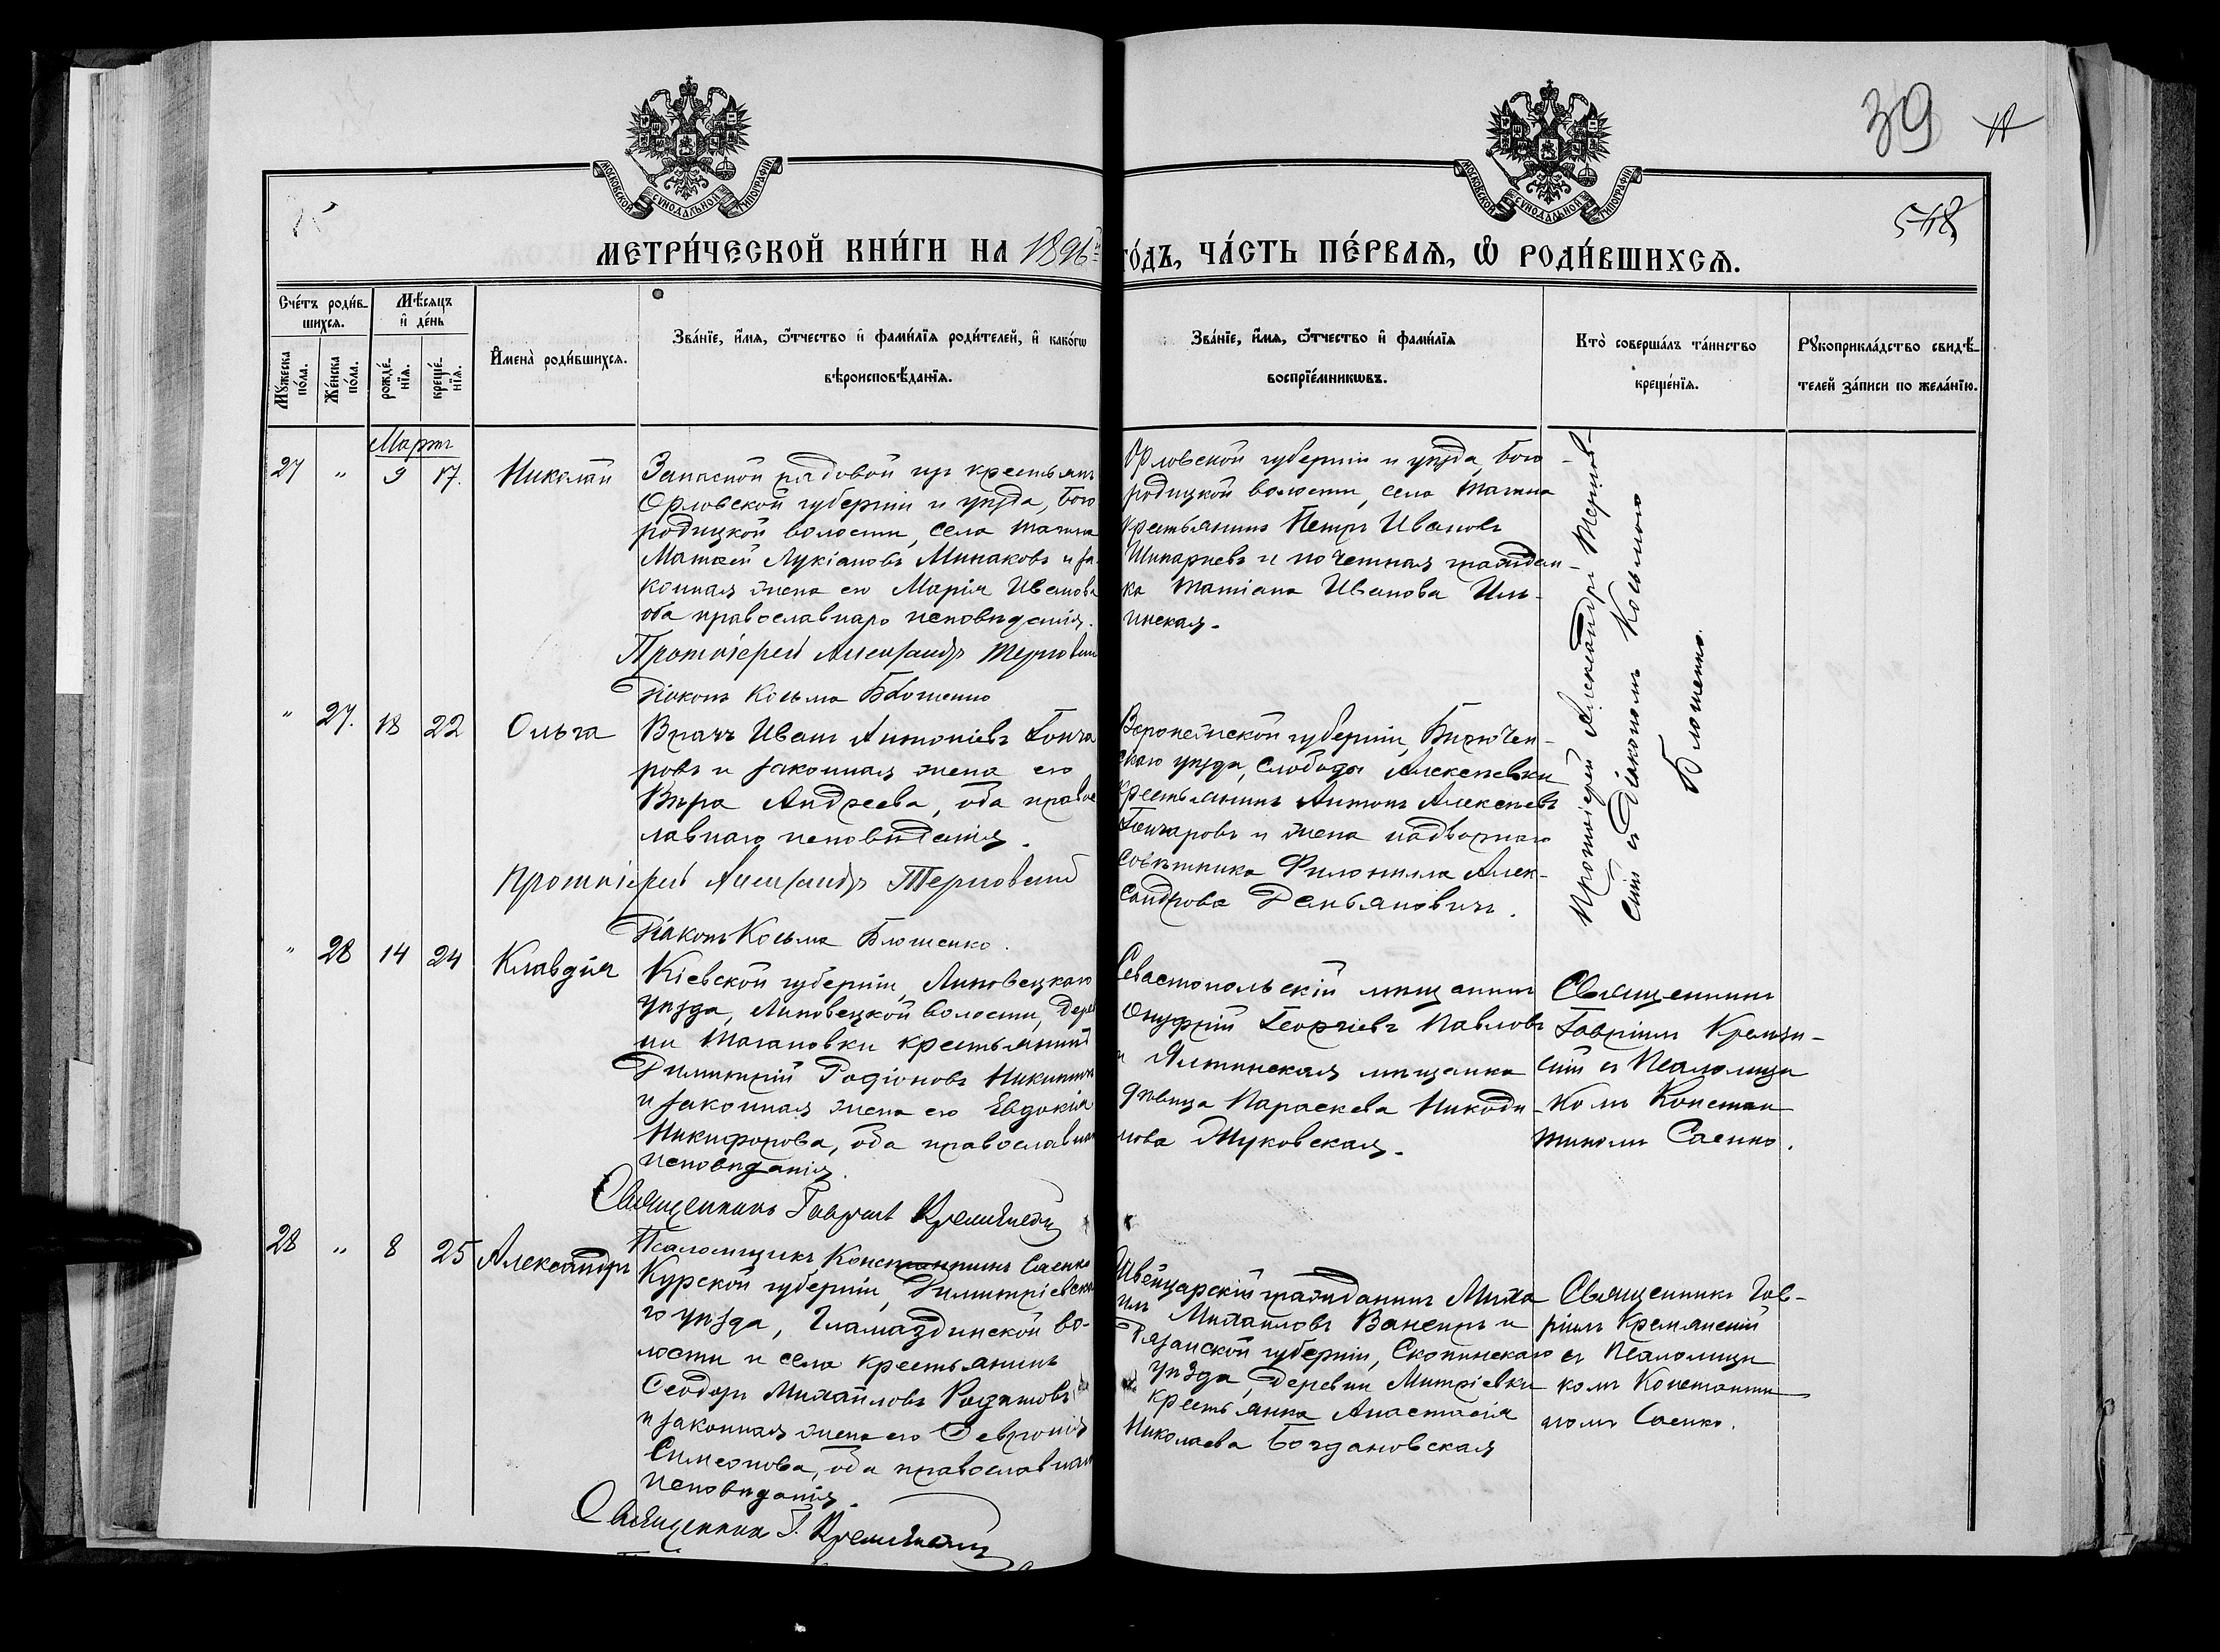 39
548
МОСКОВСКОЙ СѴНОДАЛЬНОЙ ТИПОГРАФІИ
МОСКОВСКОЙ СѴНОДАЛЬНОЙ ТИПОГРАФІИ
МЕТРИ́ЧЕСКОЙ КНИ́ГИ НА 1896й
ГО́ДЪ, ЧА́СТЬ ПЕ́РВАѦ, Ѡ҆ РОДИ́ВШИХСѦ.
Сче́тъ роди́вшихсѧ.
Мꙋ́жеска по́ла.
Же́нска по́ла.
Мѣ́сѧцъ и҆ де́нь
рожде́нїѧ.
креще́нїѧ.
И҆мена̀ роди́вшихсѧ.
Зва́нїе, и҆́мѧ, ѻ҆́тчество и҆ фами́лїѧ роди́телей, и҆ како́гѡ
вѣроисповѣ́данїѧ.
Зва́нїе, и҆́мѧ, ѻ҆́тчество и҆ фами́лїѧ
воспрїе́мникѡвъ.
Кто̀ соверша́лъ та́инство
креще́нїѧ.
Рꙋкоприкла́дство свидѣ́-
телей за́писи по жела́нїю.
Мартъ
27 " 9 17. Николай
Запасной рядовой изъ крестьянъ
Орловской губерніи и уѣзда, Бого
родицкой волости, села
Матѳей Лукіановъ Минаковъ и за
конная жена его Марія Иванова
оба православнаго исповѣданія.
Протоіерей Александръ Терновскій
Діаконъ Косьма Блошенко
Орловской губерніи и уѣзда, Бого-
родицкой волости, села
крестьянинъ Петръ Ивановъ
и почетная граждан-
ка Татіана Иванова Иль-
инская.
Протоіерей Александръ Тернов-
скій съ Діакономъ Косьмою
Блошенко.
" 27. 18 22 Ольга
Врачъ Иванъ Антоніевъ Гонча
ровъ и законная жена его
Вѣра Андреева, оба правос
лавнаго исповѣданія.
Протоіерей Александръ Терновскій
Діаконъ Косьма Блошенко.
Воронежской губерніи, Бирючен-
скаго уѣзда, слободы Алексѣевки
крестьянинъ Антонъ Алексѣевъ
Гончаровъ и жена надворнаго
совѣтника Филонилла Алек-
сандрова Демьяновичъ.
" 28 14 24 Клавдія
Кіевской губерніи, Липовецкаго
уѣзда, Липовецкой волости, дерев
ни крестьянинъ
Димитрій Родіоновъ
и законная жена его Евдокія
Никифорова, оба православнаго
исповѣданія.
Священникъ Гавріилъ Кремянскій
Псаломщикъ Константинъ Саенко
Севастопольскій мѣщанинъ
Онуфрій Георгіевъ Павловъ
и Ялтинская мѣщанка
дѣвица Параскева Никоди-
мова Жуковская.
Священникъ
Гавріилъ Кремян-
скій съ Псаломщи
комъ Констан
тиномъ Саенко.
28 " 8 25 Александръ
Курской губерніи, Димитріевска
го уѣзда, Гламаздинской во-
лости и села крестьянинъ
Ѳеодоръ Михайловъ
и законная жена его Ѳевронія
Симеонова, оба православнаго
исповѣданія.
Священникъ Г. Кремянскій
Швейцарскій гражданинъ Миха
илъ Михайловъ и
Рязанской губерніи, Скопинскаго
уѣзда, деревни Митріевки
крестьянка Анастасія
Николаева Богдановская
Священникъ Гав-
ріилъ Кремянскій
съ Псаломщи
комъ Константи
номъ Саенко.